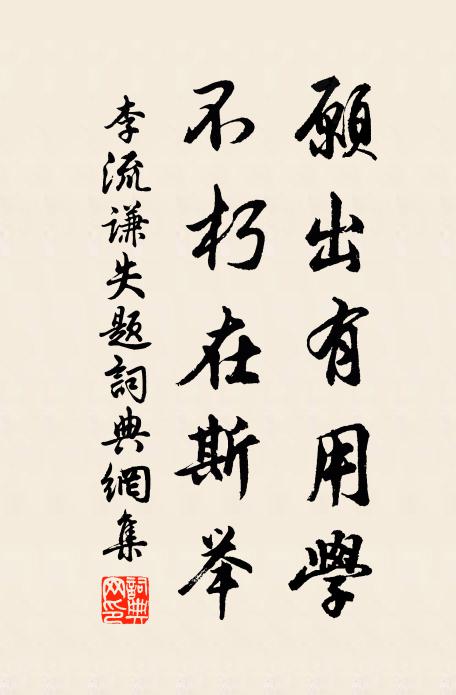 願出有用學
不朽在斯举
李流谦失题詞典網集
詞典网印